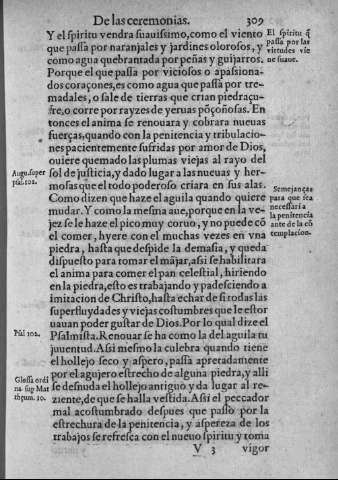 De las ceremonias. 309
Y el spiritu vendra suauissimo, como el viento
que passa por naranjales y jardines olorosos, y
como agua quebrantada por peñas y guijarros.
Porque el que passa por viciosos o apassiona-
dos coraçones, es como agua que passa por tre-
madales, o sale de tierras que crian piedraçu-
fre, o corre por rayzes de yeruas pōçoñosas. En
tonces el anima se renouara y cobrara nueuas
fuerças, quando con la penitencia y tribulacio-
nes pacientemente sufridas por amor de Dios,
quiere quemado las plumas viejas al rayo del
sol de justicia, y dado lugar a las nueuas y her-
mosas que el todo poderoso criara en sus alas.
Como dizen que haze el aguila quando quiere
mudar. Y como la mesma aue, porque en la ve-
jez se le haze el pico muy coruo, y no puede cō
el comer, hyere con el muchas vezes en vna
piedra, hasta que despide la demasia, y queda
dispuesto para tomar el mājar, assi se habilitara
el anima para comer el pan celestial, hiriendo
en la piedra, esto es trabajando y padesciendo a
imitacion de Christo, hasta echar de si todas las
superfluydades y viejas costumbres que le estor
uauan poder gustar de Dios. Por lo qual dize el
Psalmista. Renouar se ha como la del aguila tu
juuentud. Assi mesmo la culebra quando tiene
el hollejo seco y aspero, passa apretadamente
por el agujero estrecho de alguna piedra, y alli
se desnuda el hollejo antiguo y da lugar al re-
ziente, de que se halla vestida. Assi el peccador
mal acostumbrado despues que passo por la
estrechura de la penitencia, y aspereza de los
trabajos se refresca con el nueuo spiritu y toma
V 3 vigor
El spiritu q̄
passa por las
virtudes vie
ne suaue.
Aug. super
psal. 102.
Semejanças
para que sea
necessaria
la penitencia
ante de la cō
templacion.
Psal 102.
Glossa ordi
na sup Mat
thęum. 10.